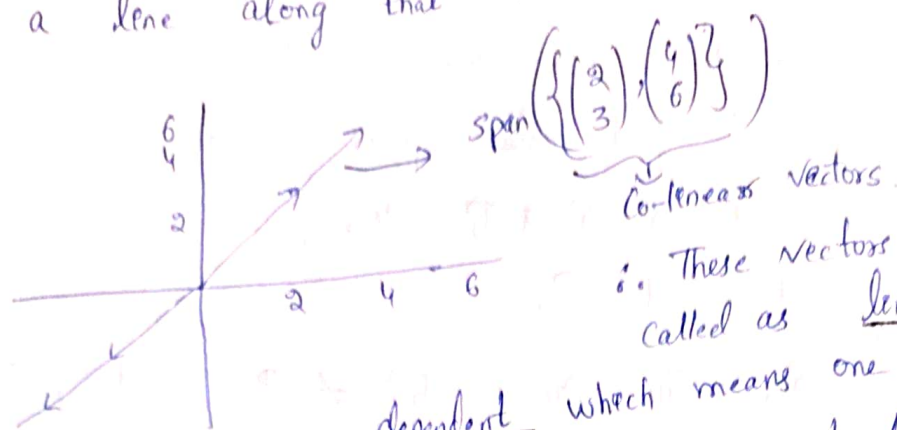 a line along that
span({(2 3), (4 6)})
6
4
2
2 4 6
Co-linear vectors
∴ These vectors
called as
dependent which means one